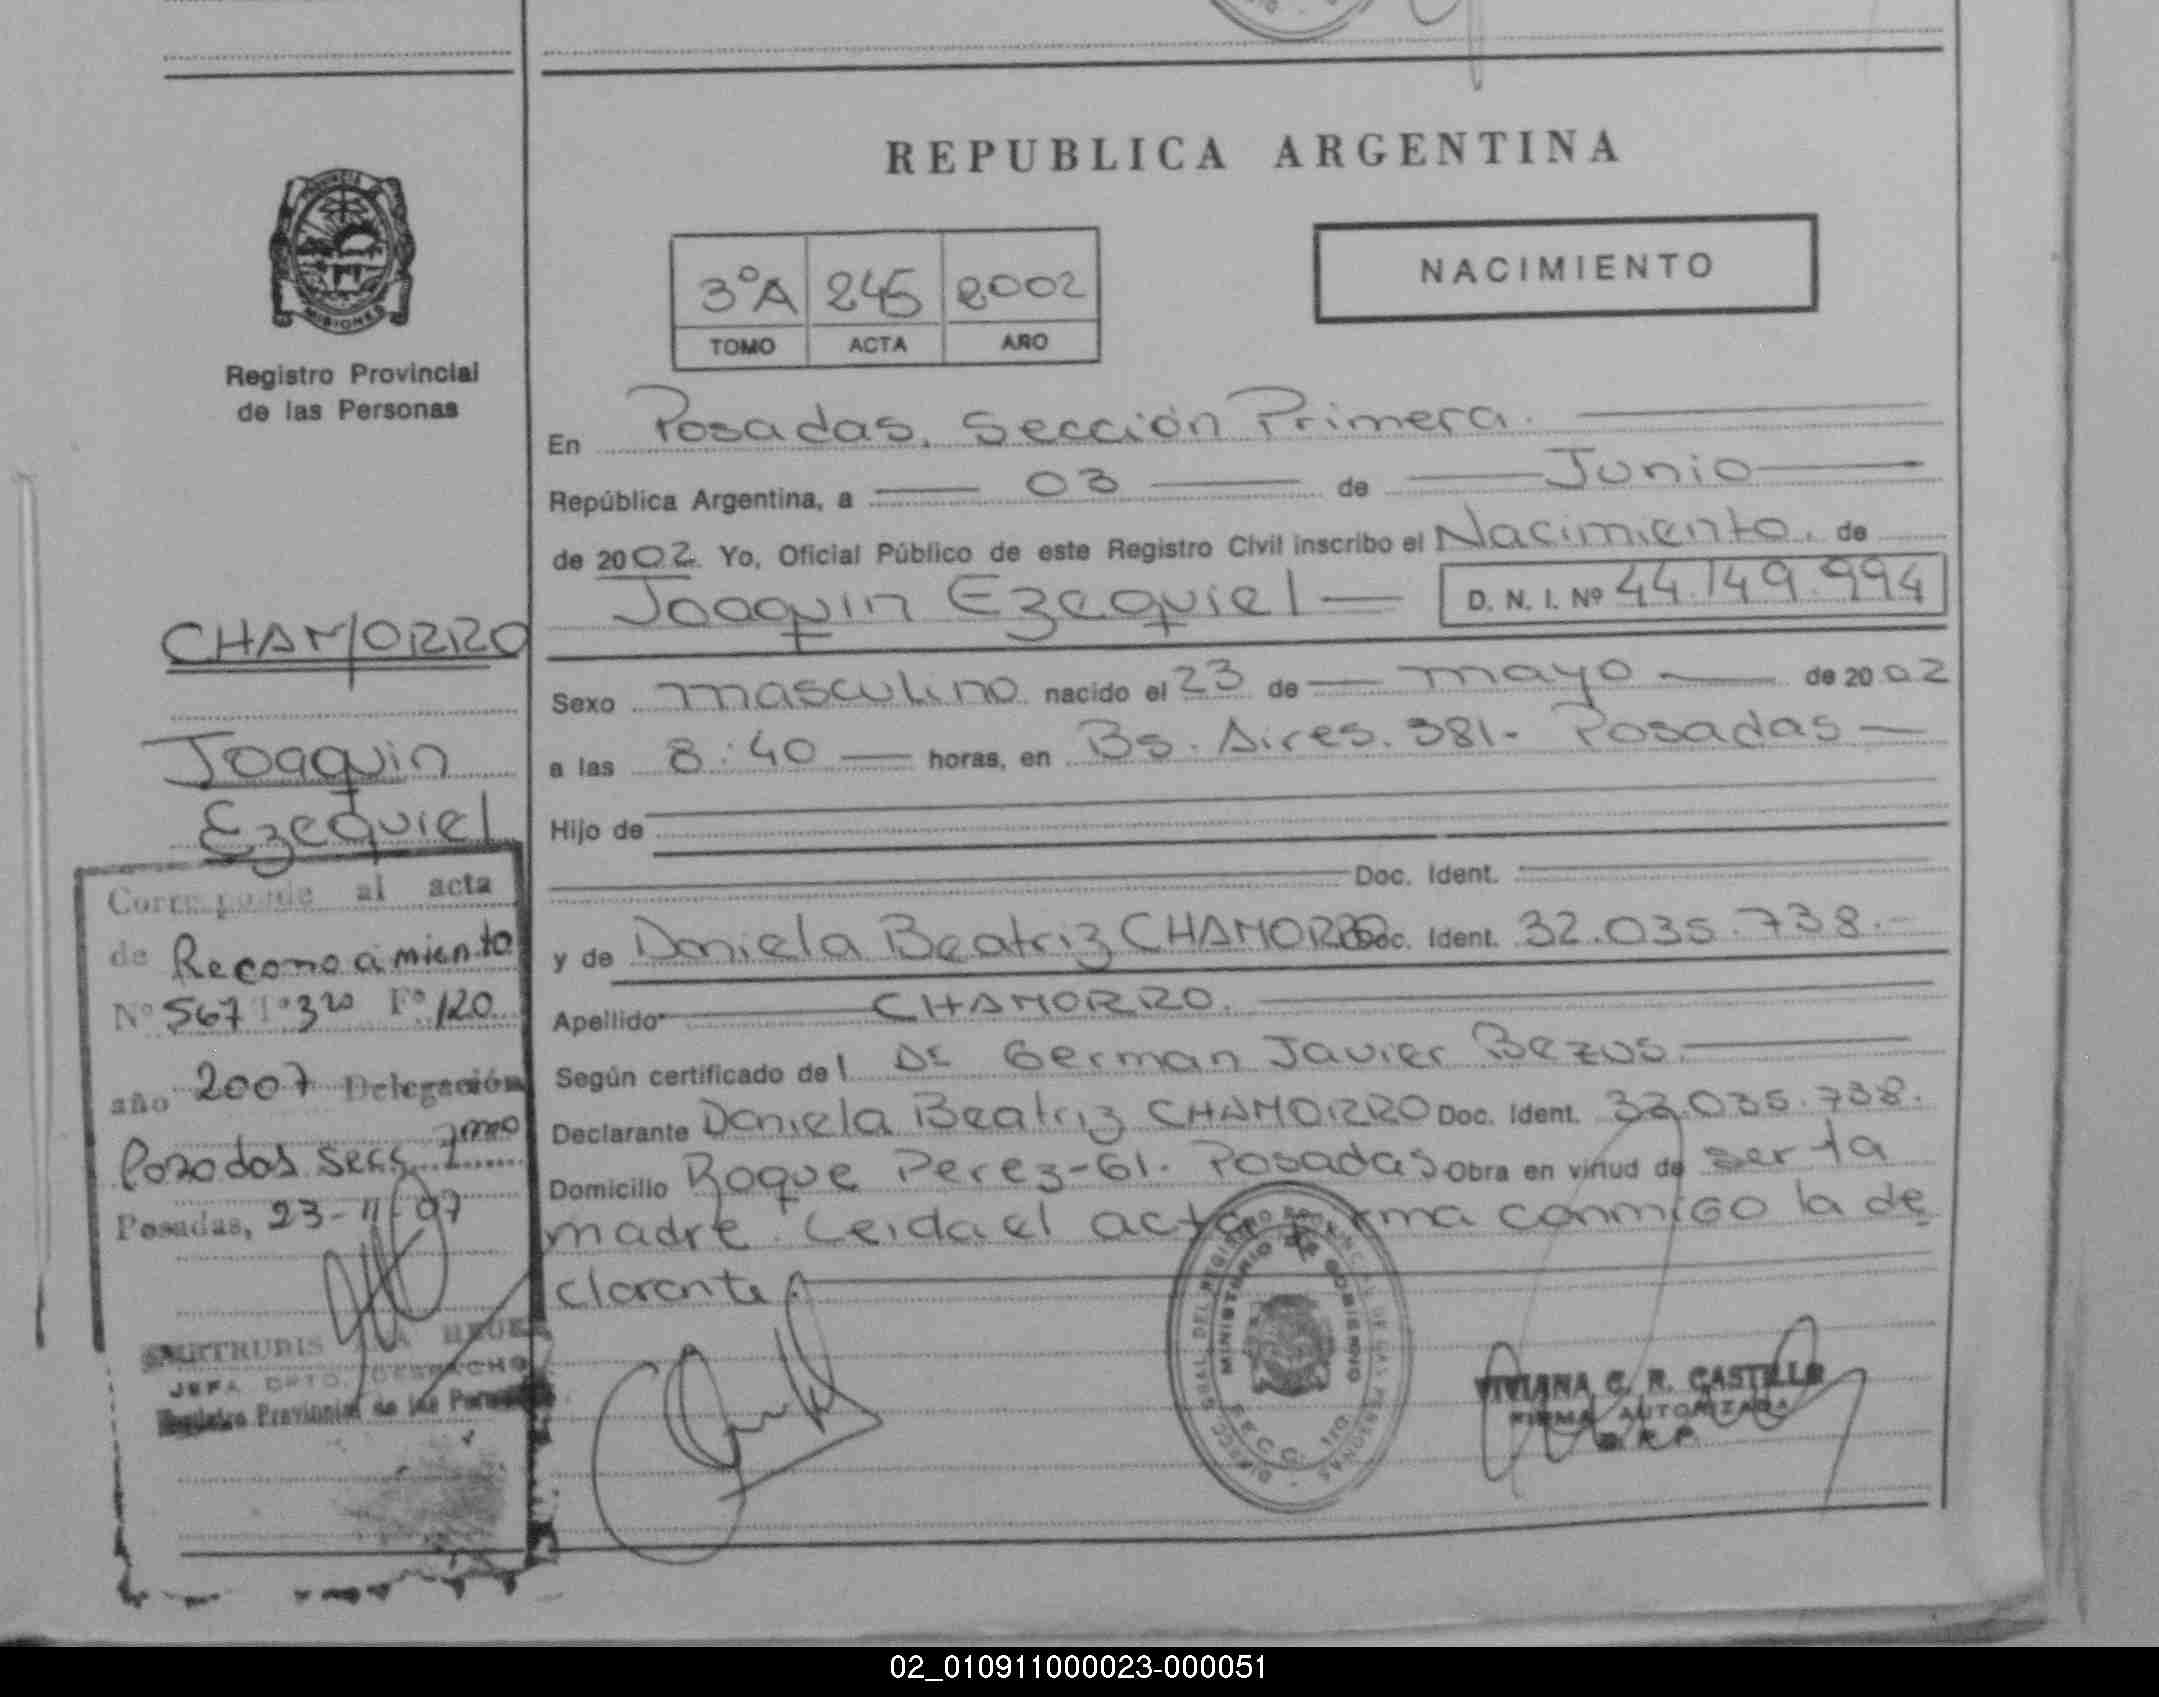 REPUBLICA ARGENTINA
PROVINCIA DE
MISIONES
Registro Provincial
de las Personas
3°A 245 2002
TOMO ACTA AÑO
NACIMIENTO
En Posadas, Sección Primera.
República Argentina, a 03 de Junio
de 2002. Yo, Oficial Público de este Registro Civil inscribo el Nacimiento. de
Joaquin Ezequiel D. N. I. Nº 44.149.994
CHAMORRO
Joaquin
Ezequiel
Sexo masculino nacido el 23 de mayo de 2002
a las 8:40 horas, en Bs. Aires. 381- Posadas
Hijo de
Doc. Ident.
y de Daniela Beatriz CHAMORRO Doc. Ident. 32.035.738.-
Apellido CHAMORRO.
Según certificado del Dr German Javier Bezus
Declarante Daniela Beatriz CHAMORRO Doc. Ident. 32.035.738.
Domicilio Roque Perez-61. Posadas Obra en virtud de ser la
madre. Leida el acta firma conmigo la de
clarante.
Corresponde al acta
de Reconocimiento
Nº 567 Tº 3ro Fº 120
año 2007 Delegación
Posadas Secc. 1
Posadas, 23-11-07
JEFA DPTO. DESPACHO
Registro Provincial de las Personas
MINISTERIO DE GOBIERNO
VIVIANA C. R. CASTILLO
FIRMA AUTORIZADA
02_010911000023-000051